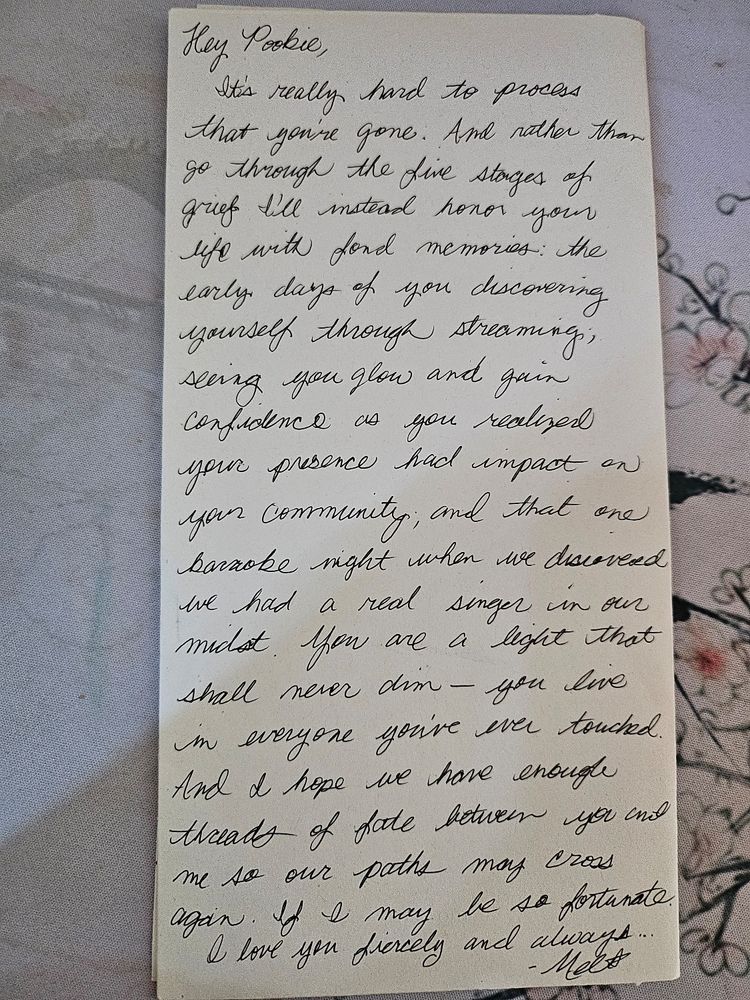 Hey Pookie,
It's really hard to process
that you're gone. And rather than
go through the five stages of
grief I'll instead honor your
life with fond memories: the
early days of you discovering
yourself through streaming;
seeing you glow and gain
confidence as you realized
your presence had impact on
your community; and that one
karaoke night when we discovered
we had a real singer in our
midst. You are a light that
shall never dim — you live
in everyone you've ever touched.
And I hope we have enough
threads of fate between you and
me so our paths may cross
again. If I may be so fortunate.
I love you fiercely and always...